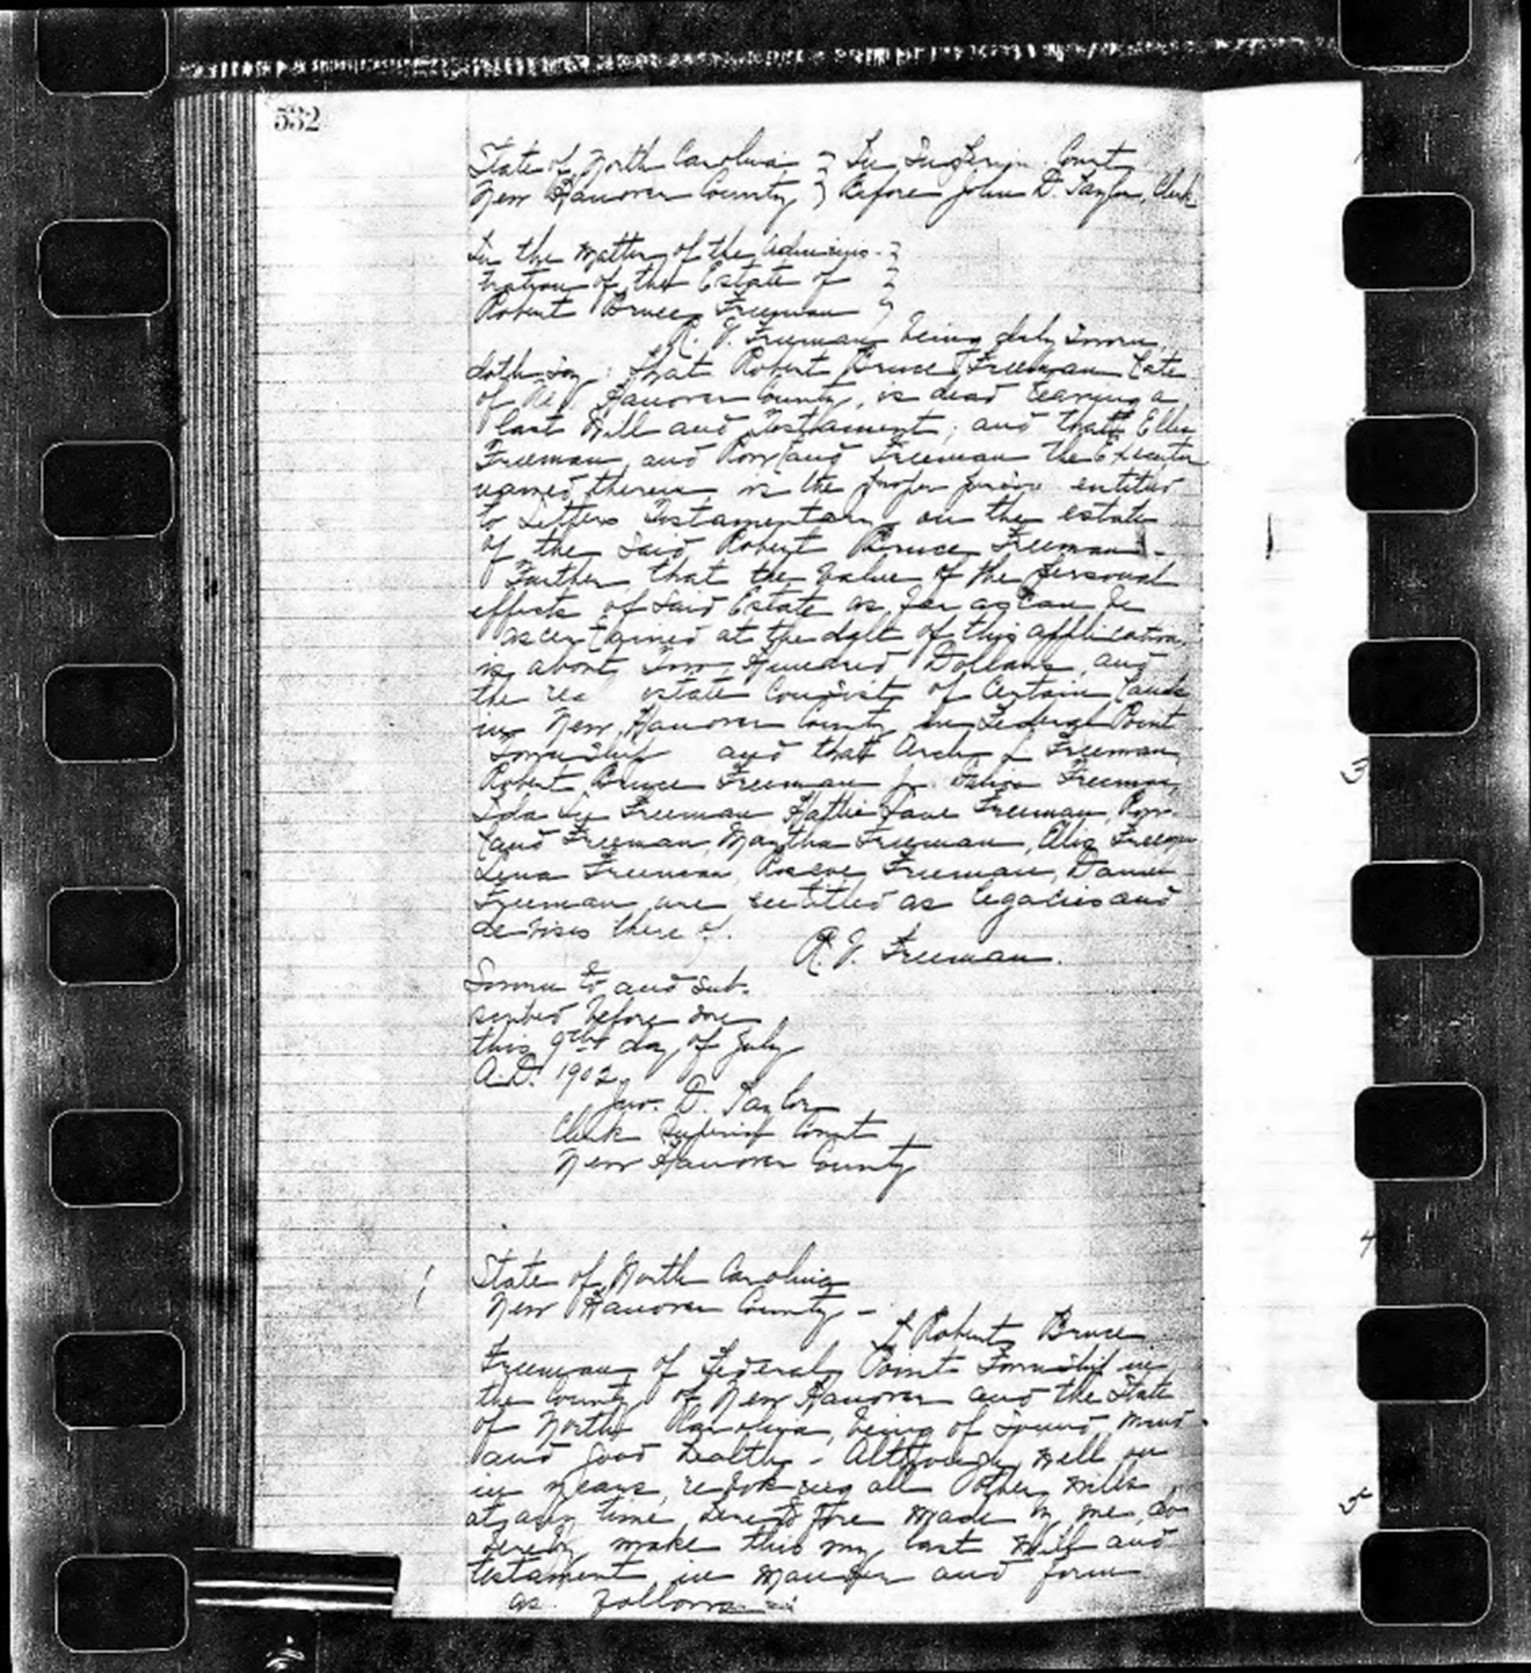 532
State of North Carolina } In Superior Court
New Hanover County } Before John D. Taylor, Clerk
In the Matter of the Adminis- }
tration of the Estate of }
Robert Bruce Freeman }
R. F. Freeman being duly sworn,
doth say: That Robert Bruce Freeman late
of New Hanover County, is dead leaving a
last Will and Testament; and that Ellen
Freeman and Rowland Freeman the Executor
named therein is the proper person entitled
to Letters Testamentary on the estate
of the said Robert Bruce Freeman -
Further that the value of the personal
effects of said Estate as far as can be
ascertained at the date of this application,
is about Two Hundred Dollars, and
the real estate consist of certain lands
in New Hanover County in Federal Point
Township and that Archy L Freeman
Robert Bruce Freeman Jr. Freeman,
Ida Freeman Hattie Jane Freeman, Row-
land Freeman, Martha Freeman, Freeman
Lena Freeman, Roscoe Freeman, Daniel
Freeman are entitled as legacies and
devises there of.
R. F. Freeman.
Sworn to and sub-
scribed before me
this 9th day of July
A.D. 1902
Jno. D. Taylor
Clerk Superior Court
New Hanover County
State of North Carolina
New Hanover County -
I Robert Bruce
Freeman of Federal Point Township in
the County of New Hanover and the State
of North Carolina, being of sound mind
and good health - Although well on
in years, revoking all other wills
at any time heretofore made by me, do
hereby make this my last Will and
testament in manner and form
as follows
3
4
5